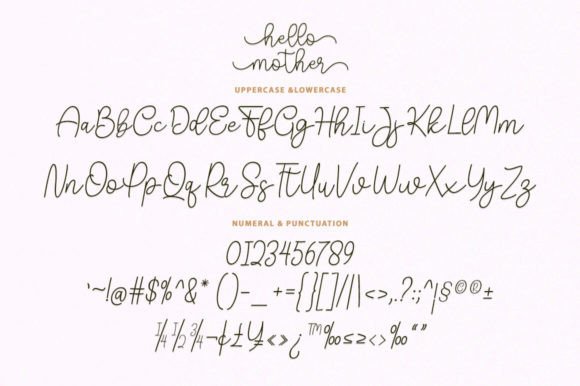 hello
mother
UPPERCASE &LOWERCASE
AaBbCcDdEeFfGgHhIiJjKkLlMm
NnOoPpQqRrSsTtUuVvWwXxYyZz
NUMERAL & PUNCTUATION
0123456789
`~!@#$%^&* ()-_ +={}[]/|\<>,.?:;^¦§©®±
¼½¾¬¢£¥«»¿™‰≤≥‹›‰“”